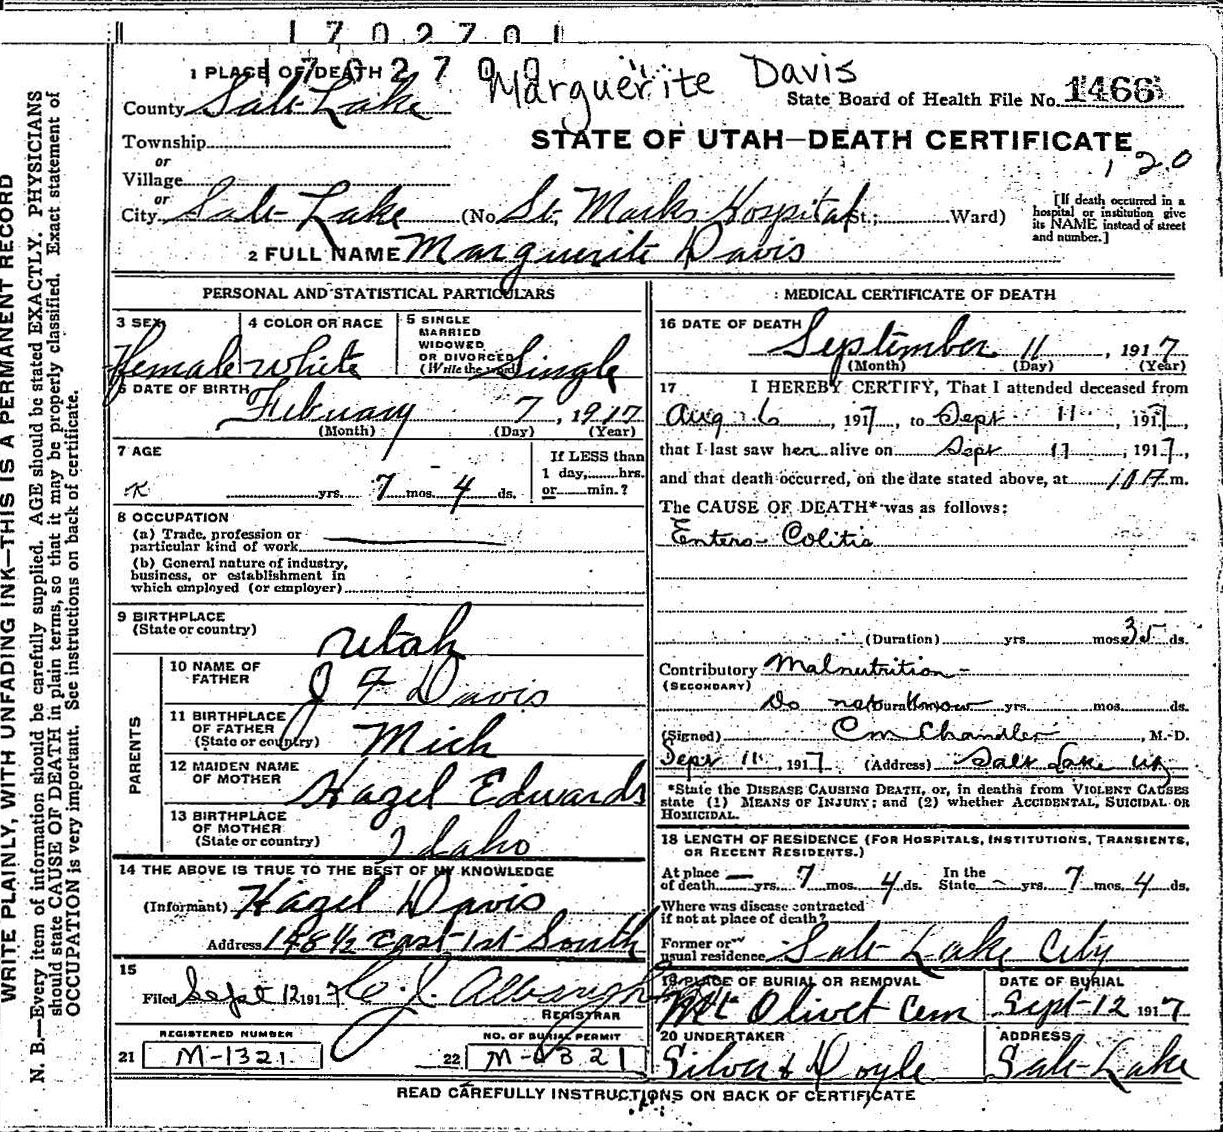 1702701
1 PLACE OF DEATH 1702700 Marguerite Davis
County Salt Lake State Board of Health File No. 1466
Township
or
Village
or
STATE OF UTAH—DEATH CERTIFICATE
120
City Salt Lake (No. St. Marks Hospital St.; Ward)
[If death occurred in a
hospital or institution give
its NAME instead of street
and number.]
2 FULL NAME Marguerite Davis
PERSONAL AND STATISTICAL PARTICULARS
3 SEX
Female
4 COLOR OR RACE
White
5 SINGLE
MARRIED
WIDOWED
OR DIVORCED
(Write the word)
Single
6 DATE OF BIRTH
February 7, 1917
(Month) (Day) (Year)
7 AGE
yrs. 7 mos. 4 ds.
If LESS than
1 day, hrs.
or min.?
8 OCCUPATION
(a) Trade, profession or
particular kind of work
(b) General nature of industry,
business, or establishment in
which employed (or employer)
9 BIRTHPLACE
(State or country)
Utah
PARENTS
10 NAME OF
FATHER
J F Davis
11 BIRTHPLACE
OF FATHER
(State or country)
Mich
12 MAIDEN NAME
OF MOTHER
Hazel Edwards
13 BIRTHPLACE
OF MOTHER
(State or country)
Idaho
14 THE ABOVE IS TRUE TO THE BEST OF MY KNOWLEDGE
(Informant) Hazel Davis
Address 148½ East 1st South
15
Filed Sept 12 1917
REGISTRAR
REGISTERED NUMBER
21 M-1321
NO. OF BURIAL PERMIT
22 M-1321
MEDICAL CERTIFICATE OF DEATH
16 DATE OF DEATH
September 11, 1917
(Month) (Day) (Year)
17 I HEREBY CERTIFY, That I attended deceased from
Aug 6, 1917, to Sept 11, 1917,
that I last saw her alive on Sept 11, 1917,
and that death occurred, on the date stated above, at m.
The CAUSE OF DEATH* was as follows:
Entero-Colitis
(Duration) yrs. mos. 35 ds.
Contributory Malnutrition
(SECONDARY)
Do not know yrs. mos. ds.
(Signed) C M Chandler, M.D.
Sept 11, 1917 (Address) Salt Lake Ut
*State the DISEASE CAUSING DEATH, or, in deaths from VIOLENT CAUSES
state (1) MEANS OF INJURY; and (2) whether ACCIDENTAL, SUICIDAL OR
HOMICIDAL.
18 LENGTH OF RESIDENCE (FOR HOSPITALS, INSTITUTIONS, TRANSIENTS,
OR RECENT RESIDENTS.)
At place In the
of death — yrs. 7 mos. 4 ds. State — yrs. 7 mos. 4 ds.
Where was disease contracted
if not at place of death?
Former or
usual residence Salt Lake City
19 PLACE OF BURIAL OR REMOVAL
Mt Olivet Cem
DATE OF BURIAL
Sept-12 1917
20 UNDERTAKER
Silver & Doyle
ADDRESS
Salt Lake
READ CAREFULLY INSTRUCTIONS ON BACK OF CERTIFICATE
WRITE PLAINLY, WITH UNFADING INK—THIS IS A PERMANENT RECORD
N. B.—Every item of information should be carefully supplied. AGE should be stated EXACTLY. PHYSICIANS
should state CAUSE OF DEATH in plain terms, so that it may be properly classified. Exact statement of
OCCUPATION is very important. See instructions on back of certificate.